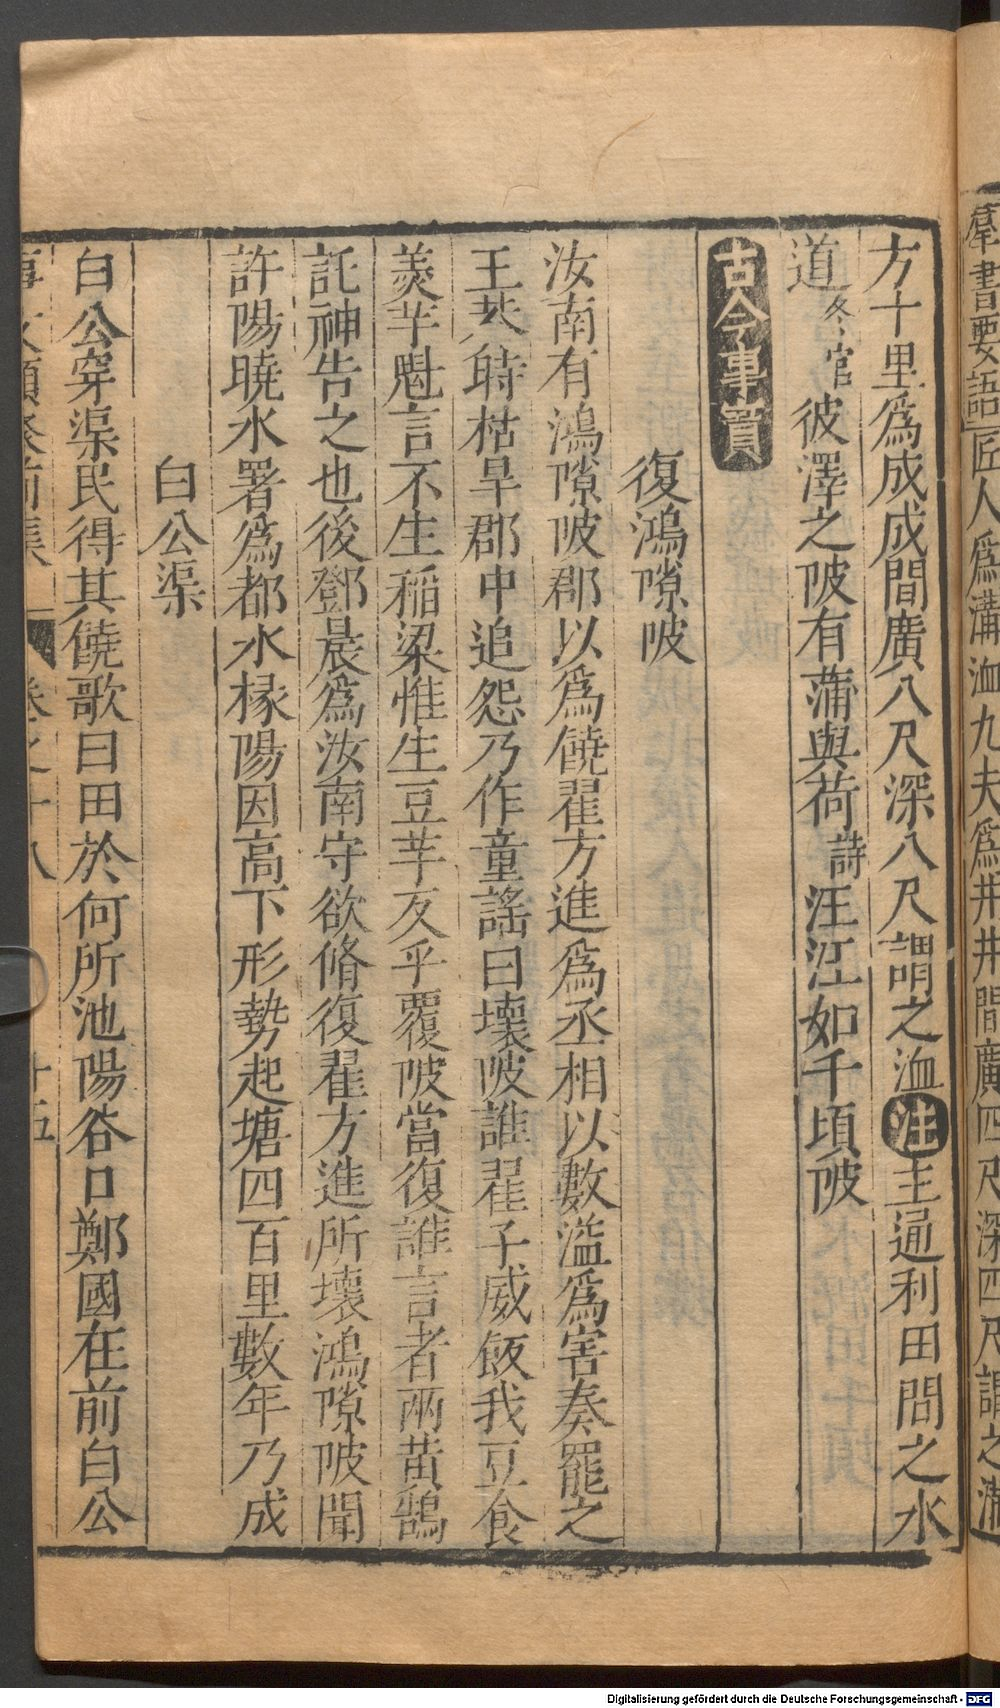 羣書要語匠人爲溝洫九夫爲井井間廣四尺深四尺謂之溝
方十里爲成成間廣八尺深八尺謂之洫注主通利田間之水
道冬官彼澤之陂有蒲與荷詩汪汪如千頃陂
古今事實
復鴻隙陂
汝南有鴻隙陂郡以爲饒翟方進爲丞相以數溢爲害奏罷之
王莽時枯旱郡中追怨乃作童謠曰壞陂誰翟子威飯我豆食
羮芋魁言不生稻粱惟生豆芋反乎覆陂當復誰言者兩黄鵠
託神告之也後鄧晨爲汝南守欲脩復翟方進所壞鴻隙陂聞
許陽曉水署爲都水椽陽因高下形勢起塘四百里數年乃成
白公渠
白公穿渠民得其饒歌曰田於何所池陽谷口鄭國在前白公
事文類聚前集 卷之十八 十五
Digitalisierung gefördert durch die Deutsche Forschungsgemeinschaft - DFG